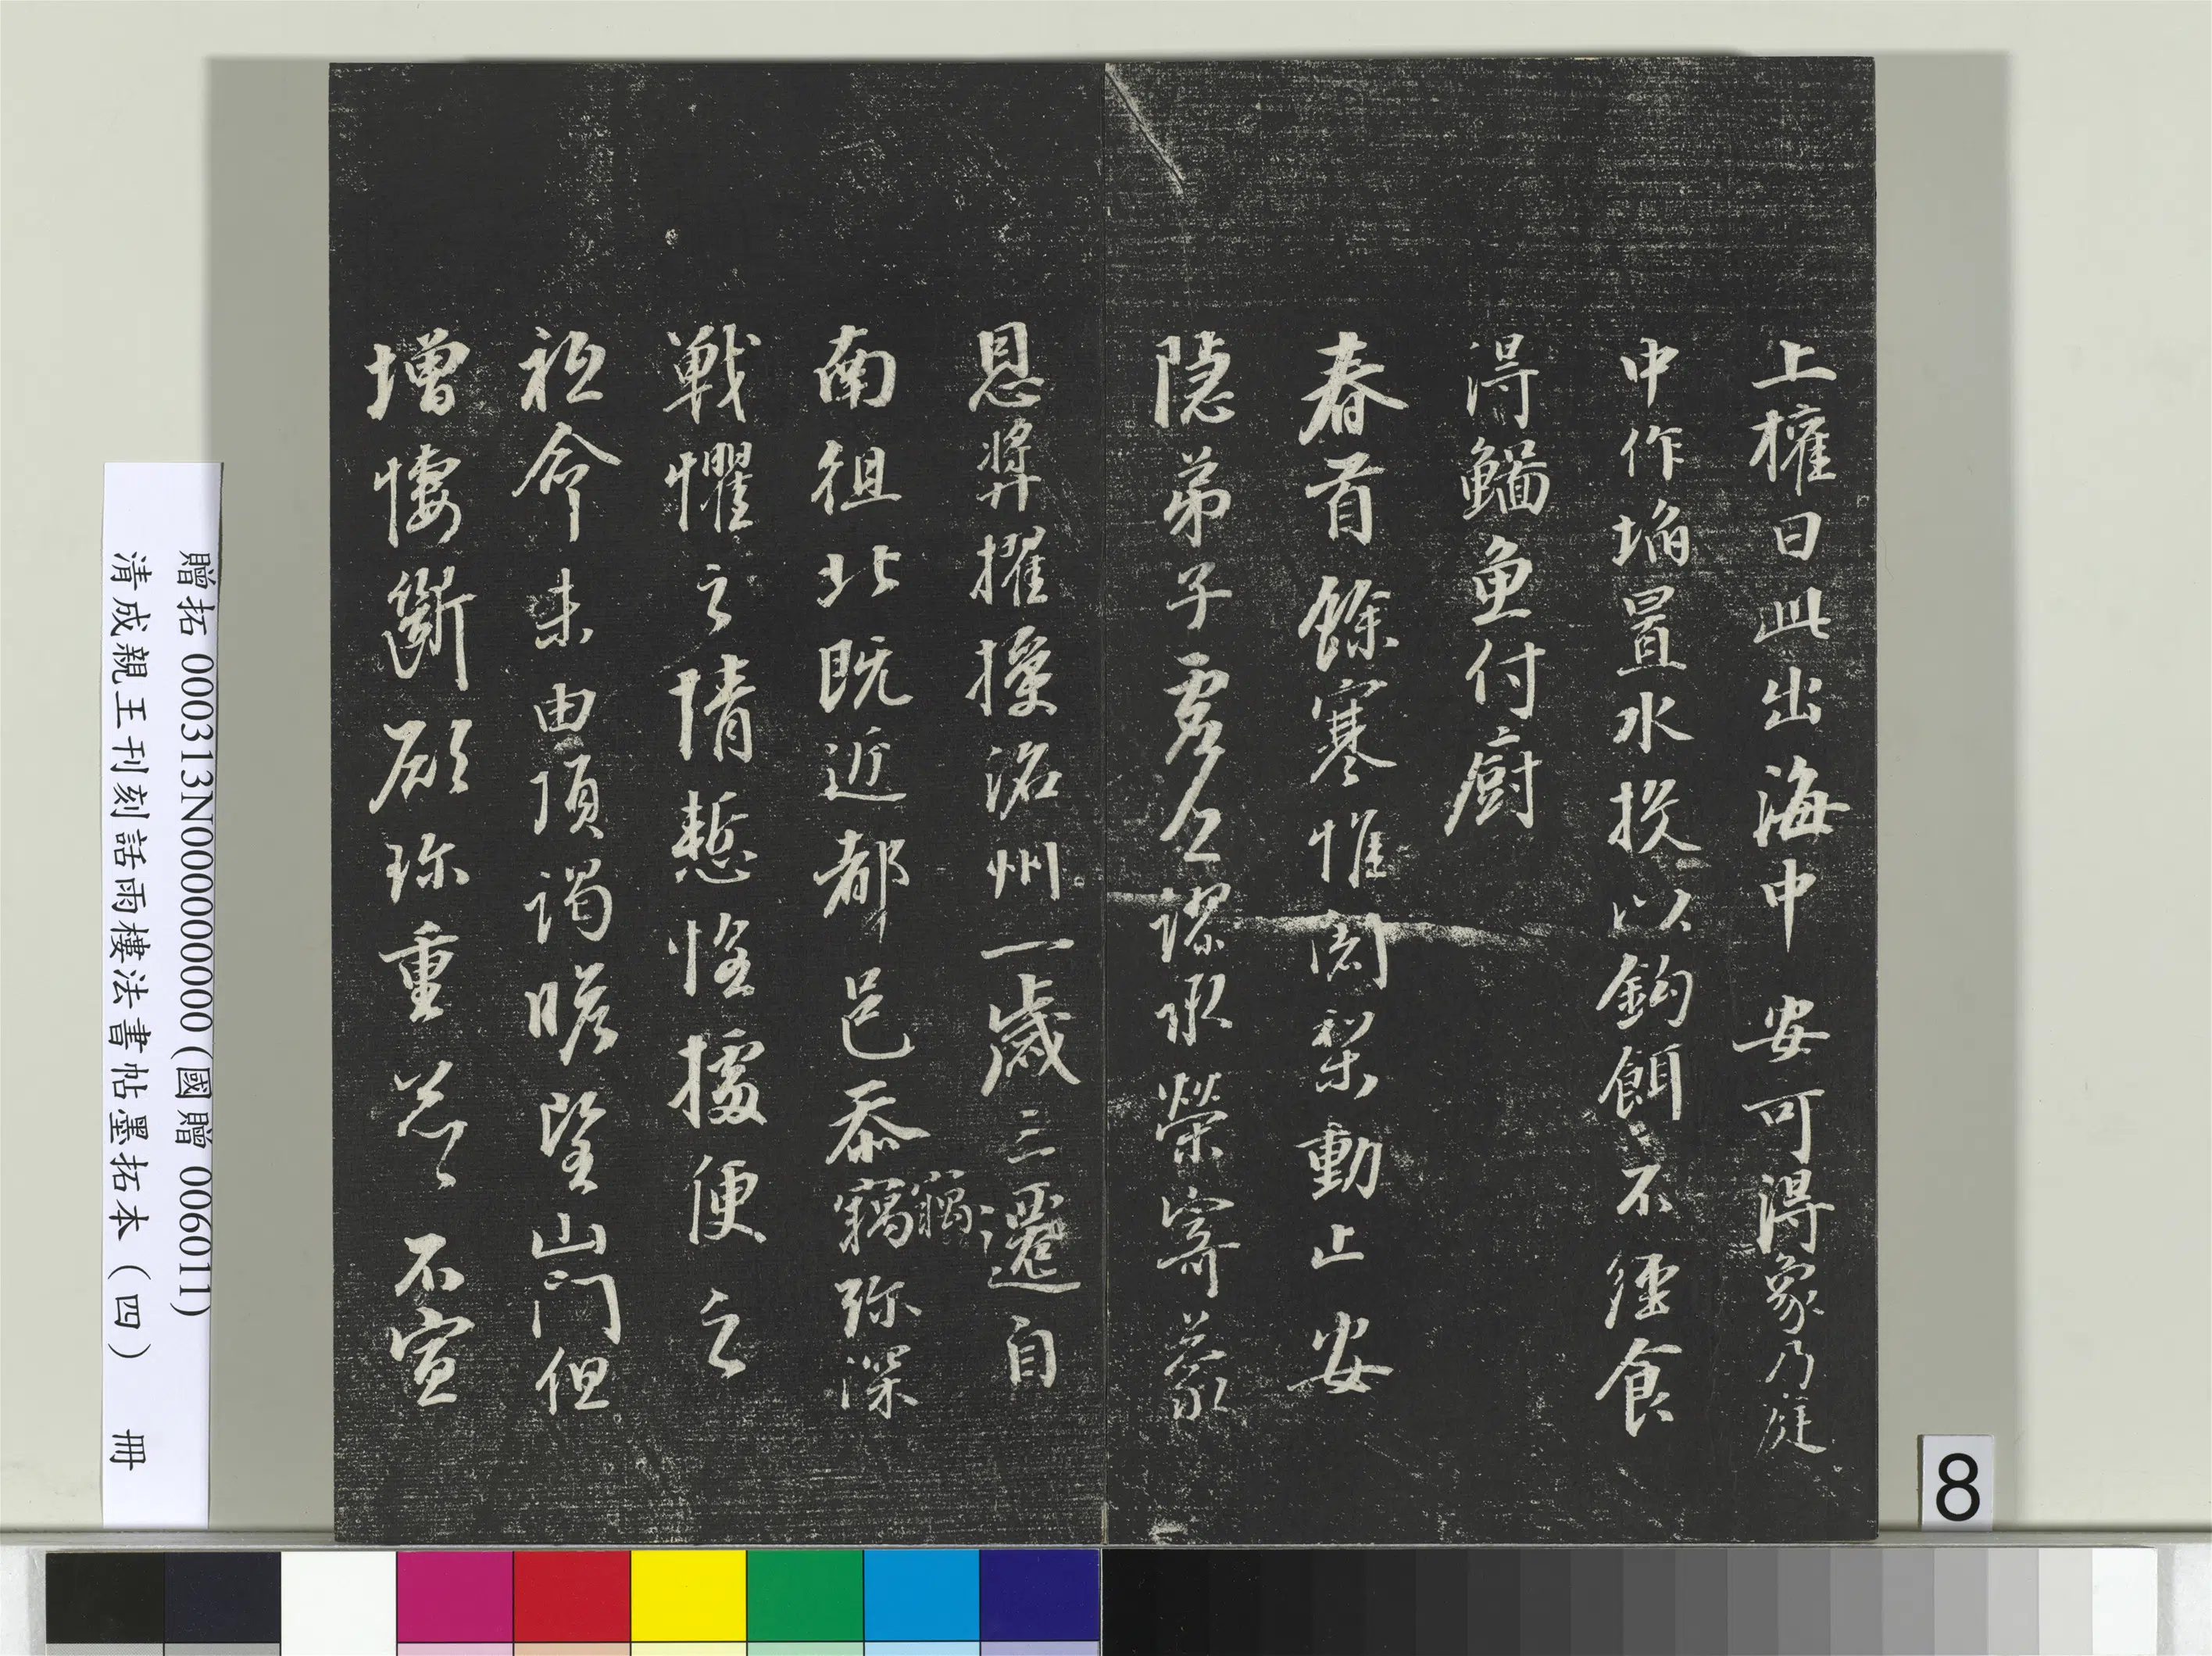 上權曰此出海中安可得象乃庭
中作埳置水投以鈎餌不経食
得鯔魚付廚
春首餘寒惟闍梨動止安
隱弟子虛乏謬承榮寄蒙
恩獎擢授洺州一歲三遷自
南徂北既近都邑忝竊弥深
竊
戰懼之情慙惶據便之
祗命未由頂謁瞻望山門但
增悽斷願珎重羌〻不宣
贈拓 000313N000000000(國贈 006011)
清成親王刊刻詒雨樓法書帖墨拓本(四) 冊
8